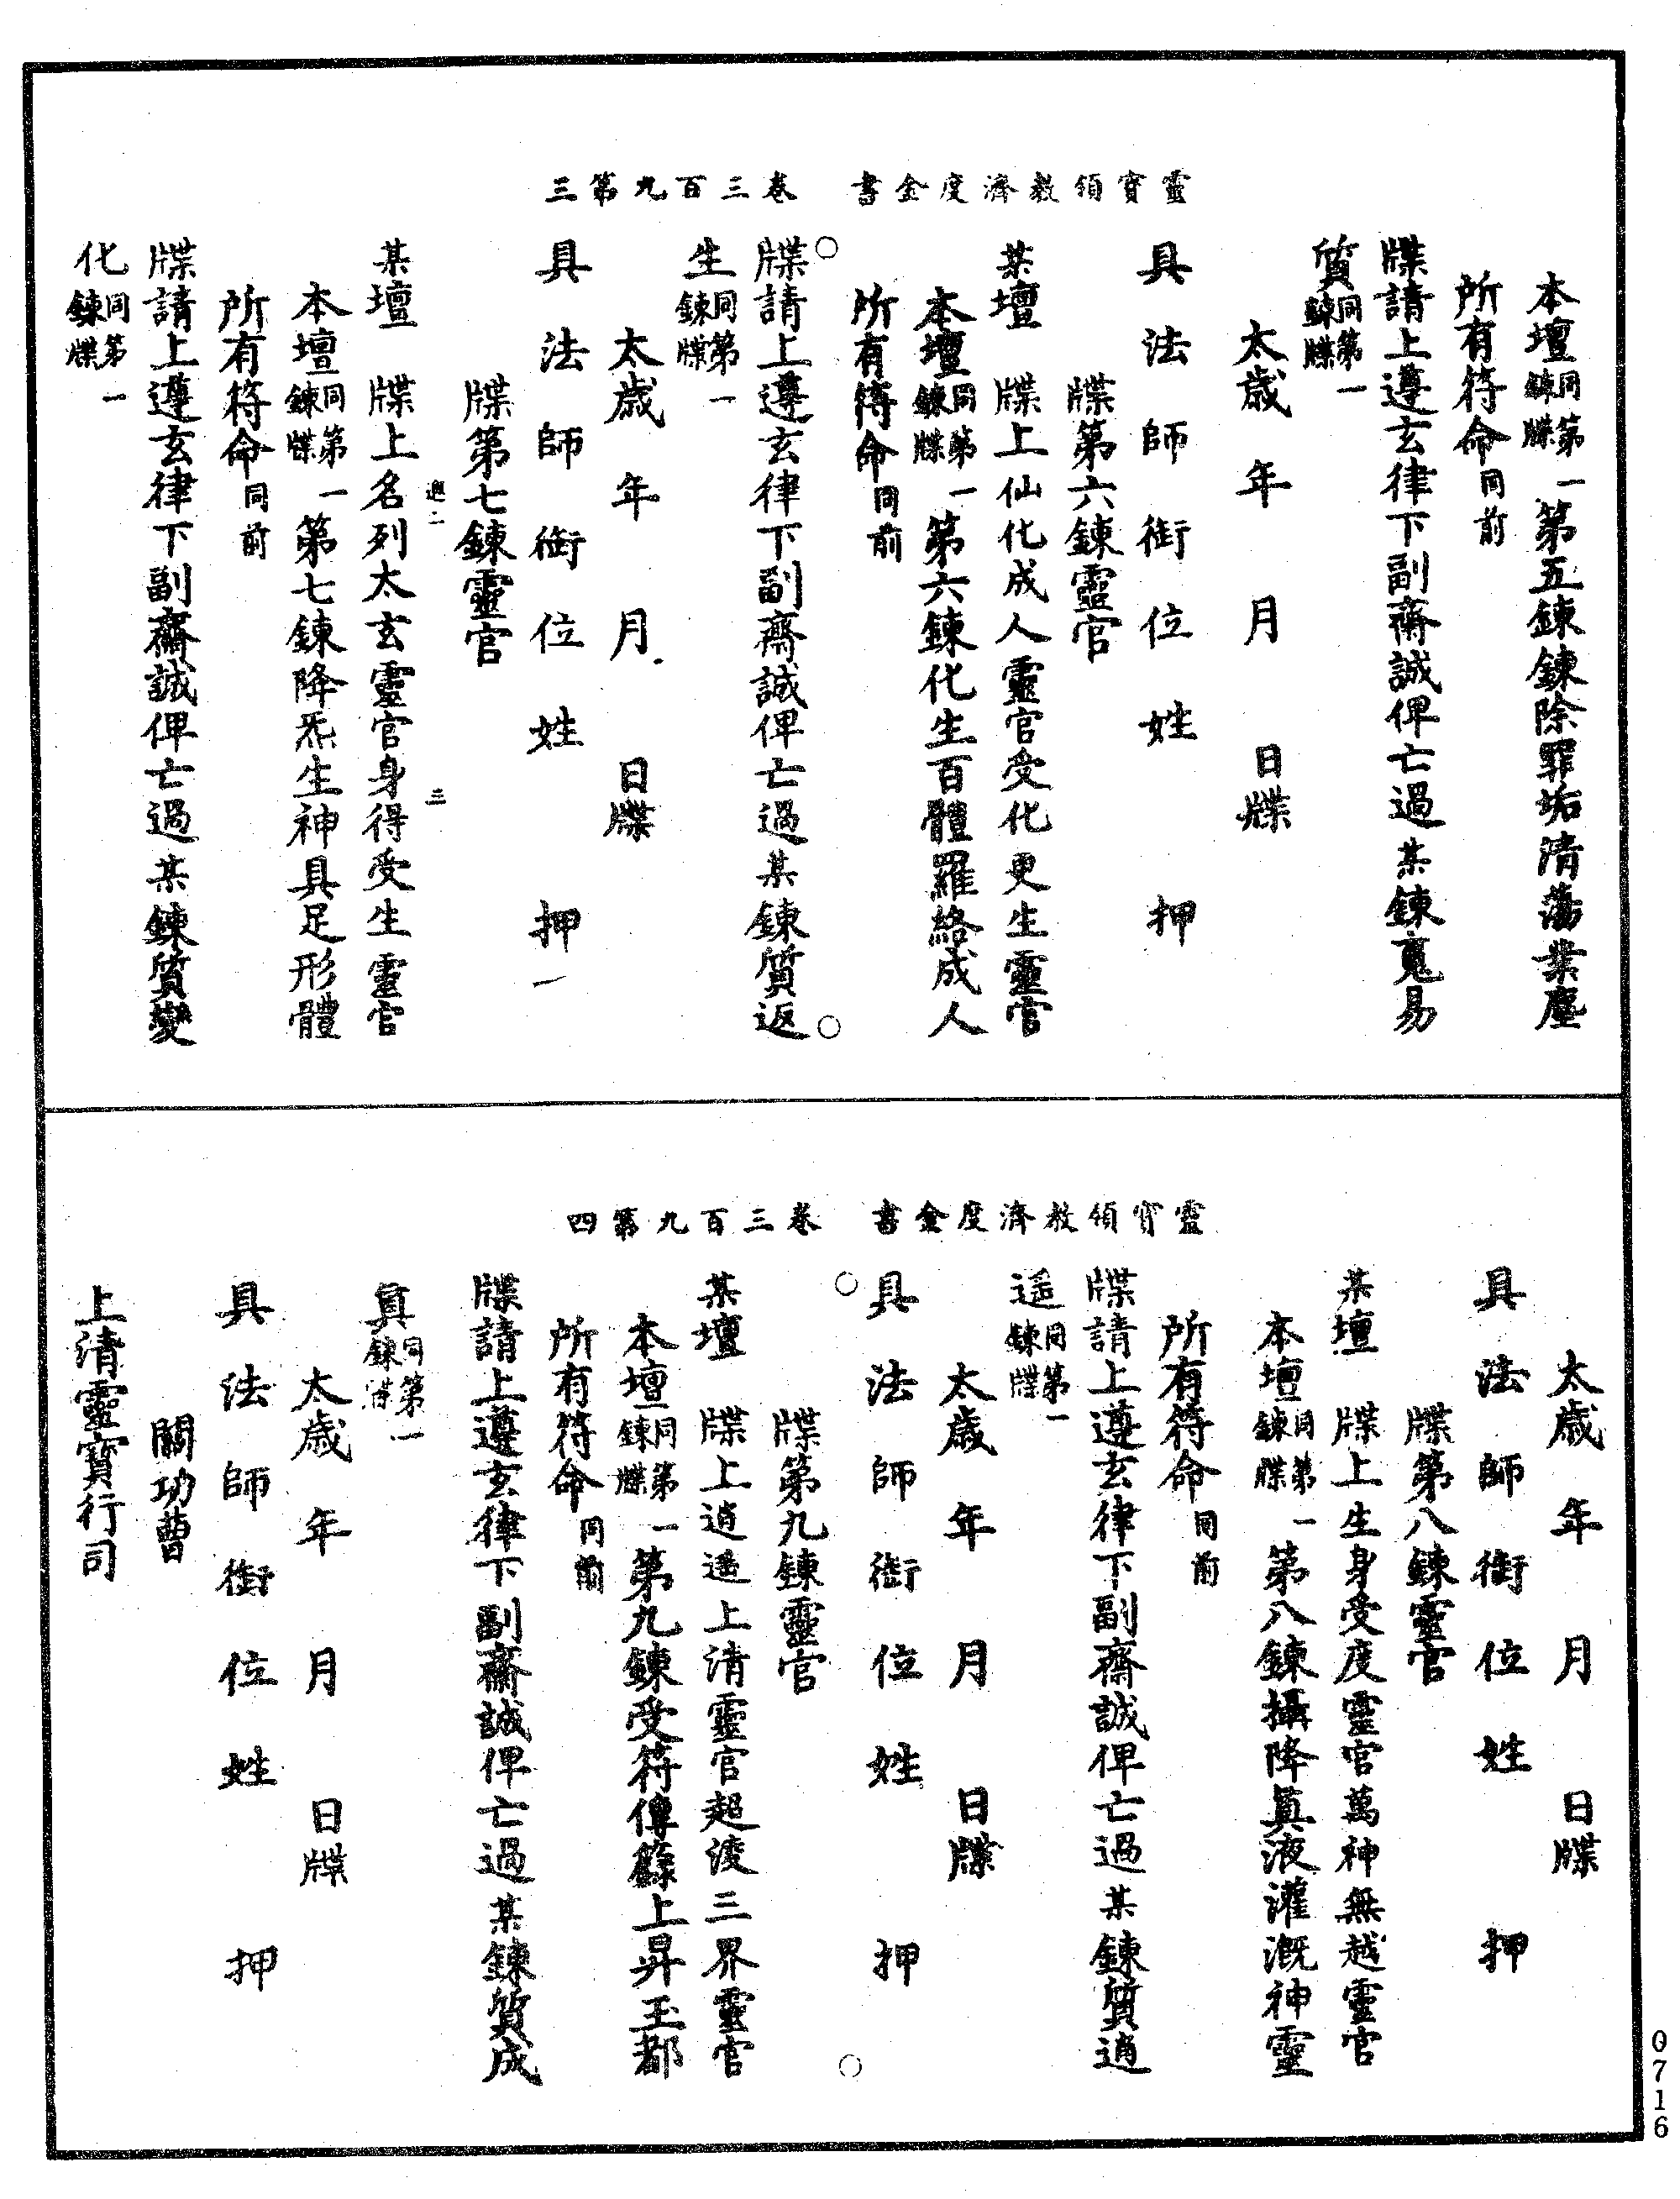 靈寶領教濟度金書　卷三百九第三
本壇同第一鍊牒第五鍊鍊除罪垢清蕩業塵
所有符命同前
牒請上遵玄律下副齋誠俾亡過某鍊蒐易
質同第一鍊牒
太歲　年　月　日牒
具　法　師　銜　位　姓　押
牒第六鍊靈官
某壇　牒上仙化成人靈官受化更生靈官
本壇同第一鍊牒第六鍊化生百體羅絡成人
所有符命同前
牒請上遵玄律下副齋誠俾亡過某鍊質返
生同第一鍊牒
太歲　年　月　日牒
具　法　師　銜　位　姓　押
牒第七鍊靈官
三
某壇　牒上名列太玄靈官身得受生靈官
本壇同第一鍊牒第七鍊降炁生神具足形體
所有符命同前
牒請上遵玄律下副齋誠俾亡過某鍊質變
化同第一鍊牒
靈寶領教濟度金書　卷三百九第四
太歲　年　月　日牒
具　法　師　銜　位　姓　押
牒第八鍊靈官
某壇　牒上生身受度靈官萬神無越靈官
本壇同第一鍊牒第八鍊攝降眞液灌溉神靈
所有符命同前
牒請上遵玄律下副齋誠俾亡過某鍊質逍
遥同第一鍊牒
太歲　年　月　日牒
具　法　師　銜　位　姓　押
牒第九鍊靈官
某壇　牒上逍遥上清靈官超凌三界靈官
本壇同第一鍊牒第九鍊受符傳籙上昇玉都
所有符命同前
牒請上遵玄律下副齋誠俾亡過某鍊質成
眞同第一鍊牒
太歲　年　月　日牒
具　法　師　銜　位　姓　押
關功曹
上清靈寶行司
0716